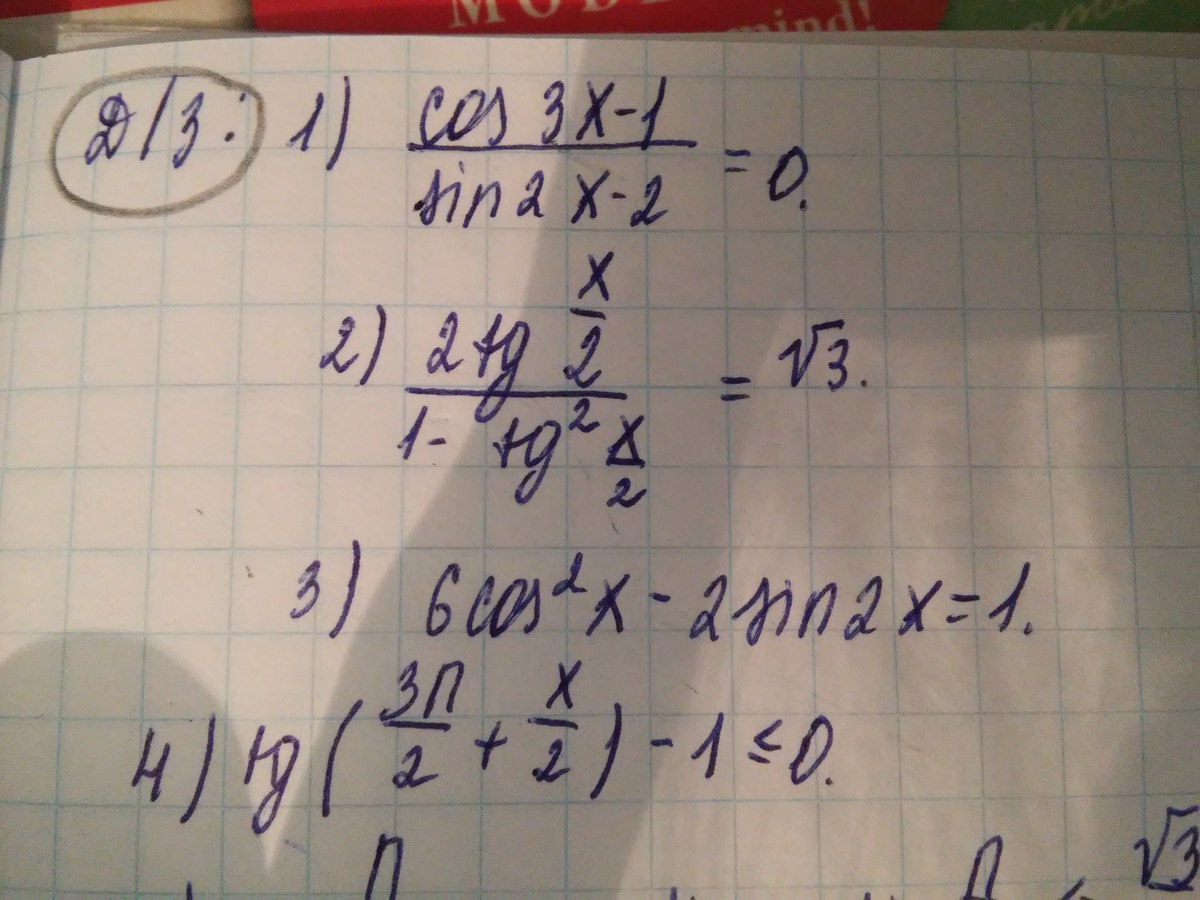 MOD
mind!
Д/З: 1) (cos 3x-1)/(sin2x-2) = 0.
2) (2tg x/2)/(1- tg² x/2) = √3.
3) 6cos²x - 2sin2x=1.
4) tg(3π/2 + x/2) - 1 ≤ 0.
π π √3